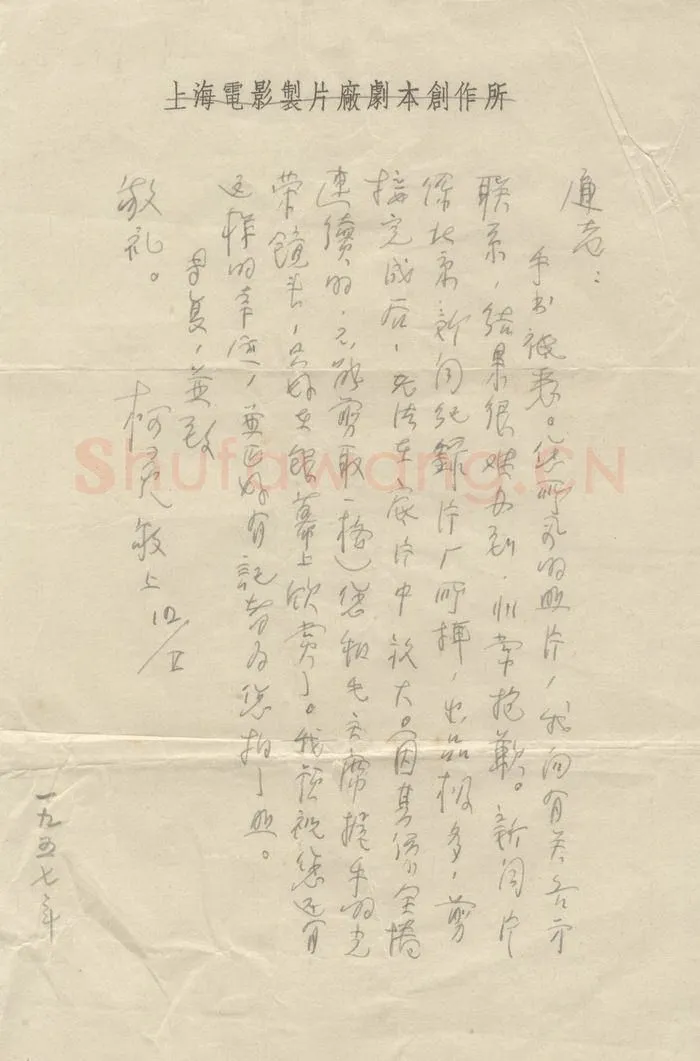 上海電影製片廠劇本創作所
老：
手书祗悉。您所需的照片，我向有关各方
联系，结果很难办到，非常抱歉。新闻片
系北京新闻纪錄片厂所摄，出品极多，剪
接完成后，无法在底片中放大。（因其系全卷
連續的，不能剪取一格）您和毛主席握手的光
荣镜头，只好在银幕上欣赏了。我预祝您还有
这样的幸運，並正好有記者为您拍了照。
专复，並致
敬礼。
柯灵敬上 12/II
一九五七年
Shufawang.CN